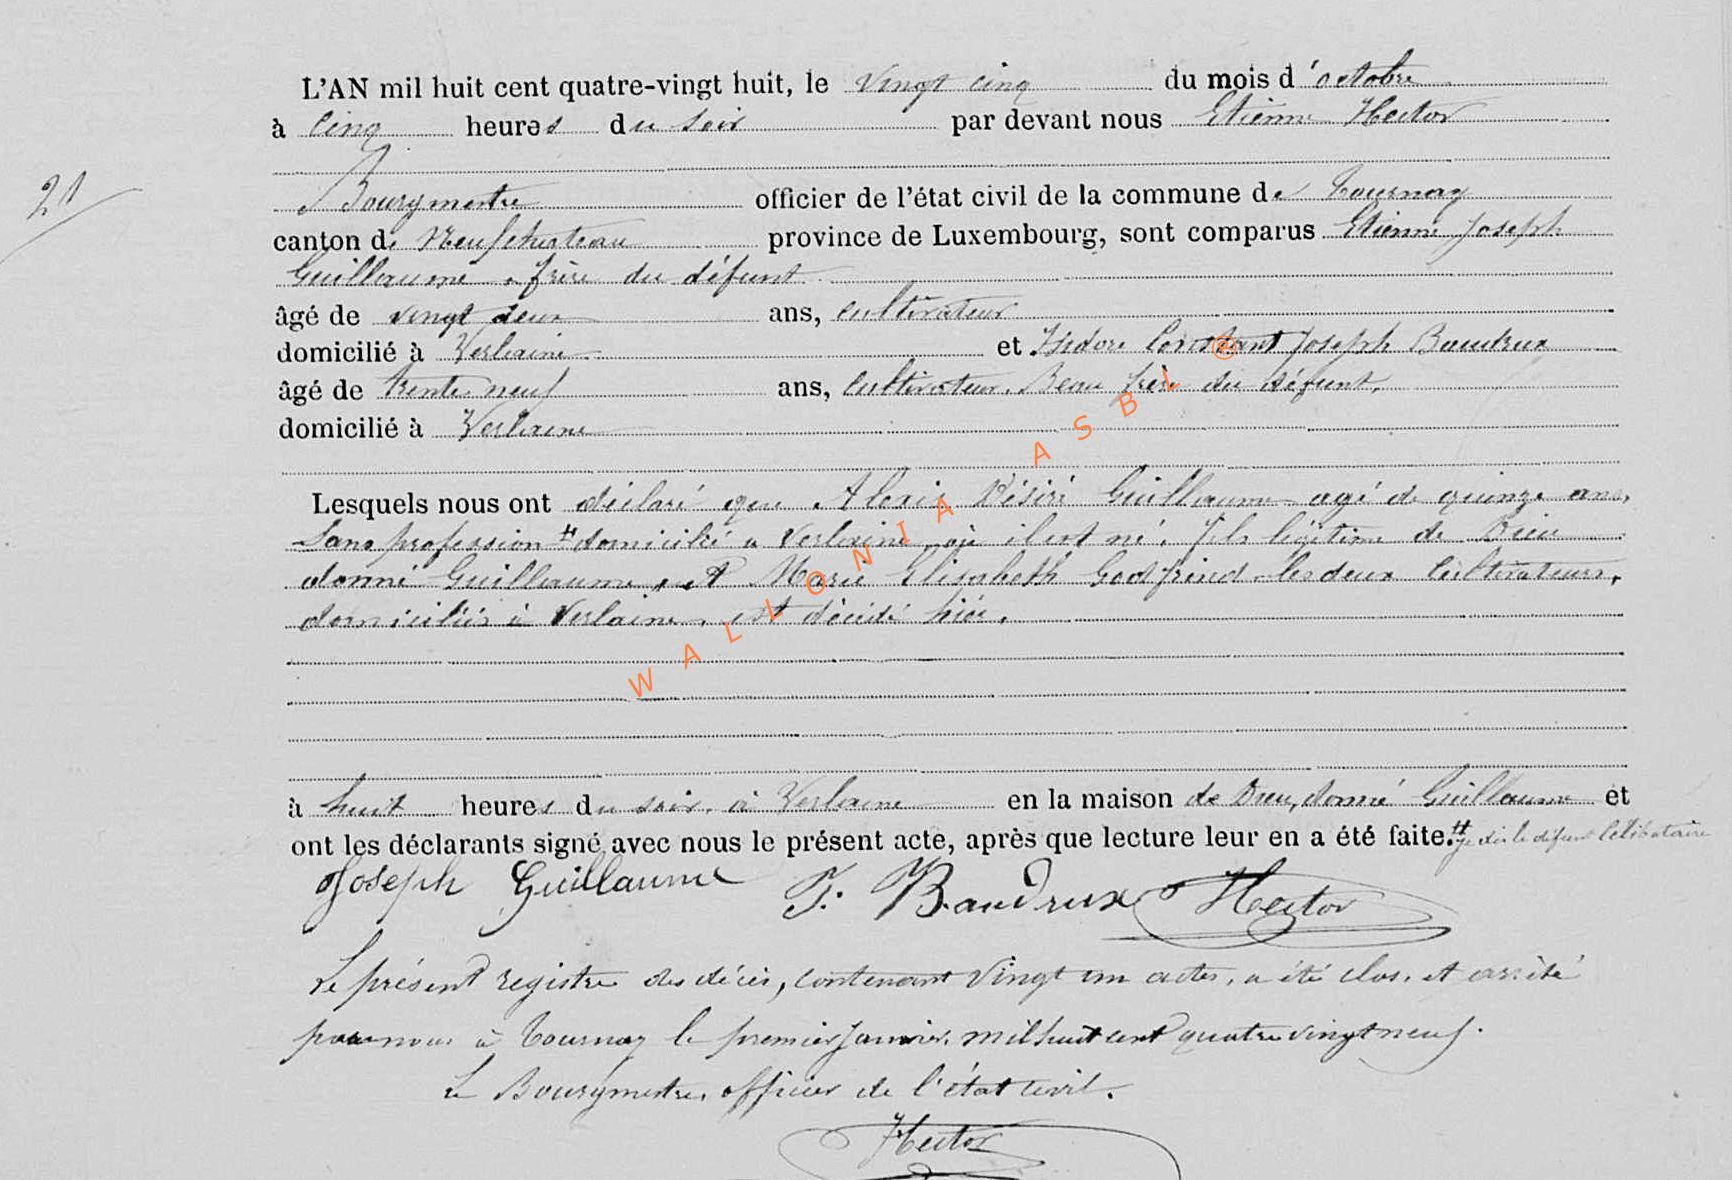 L'AN mil huit cent quatre-vingt huit, le vingt cinq du mois d'octobre
à cinq heures du soir par devant nous Etienne Hector
21
Bourgmestre officier de l'état civil de la commune de Tournay
canton de Neufchateau province de Luxembourg, sont comparus Etienne Joseph
Guillaume, frère du défunt
âgé de vingt deux ans, cultivateur
domicilié à Verlaine. et Isidore Constant Joseph Baudrux
âgé de trente neuf ans, cultivateur, Beau frère du défunt,
domicilié à Verlaine
Lesquels nous ont déclaré que Alexis Désiré Guillaume agé de quinze ans,
Sans profession # domicilié à Verlaine, où il est né, fils légitime de Dieu
donné Guillaume, et Marie Elisabeth Godfrind les deux cultivateurs,
domiciliés à Verlaine, est décédé hier,
WALLONIA ASBL ©
à huit heures du soir, à Verlaine en la maison de Dieu,donné Guillaume et
ont les déclarants signé avec nous le présent acte, après que lecture leur en a été faite. # le défunt célibataire
Joseph Guillaume J. Baudrux Hector
Le présent registre des décès, contenant vingt un actes, a été clos, et arrêté
par nous à Tournay le premier Janvier, mil huit cent quatre vingt neuf.
Le Bourgmestre, officier de l'état civil.
Hector